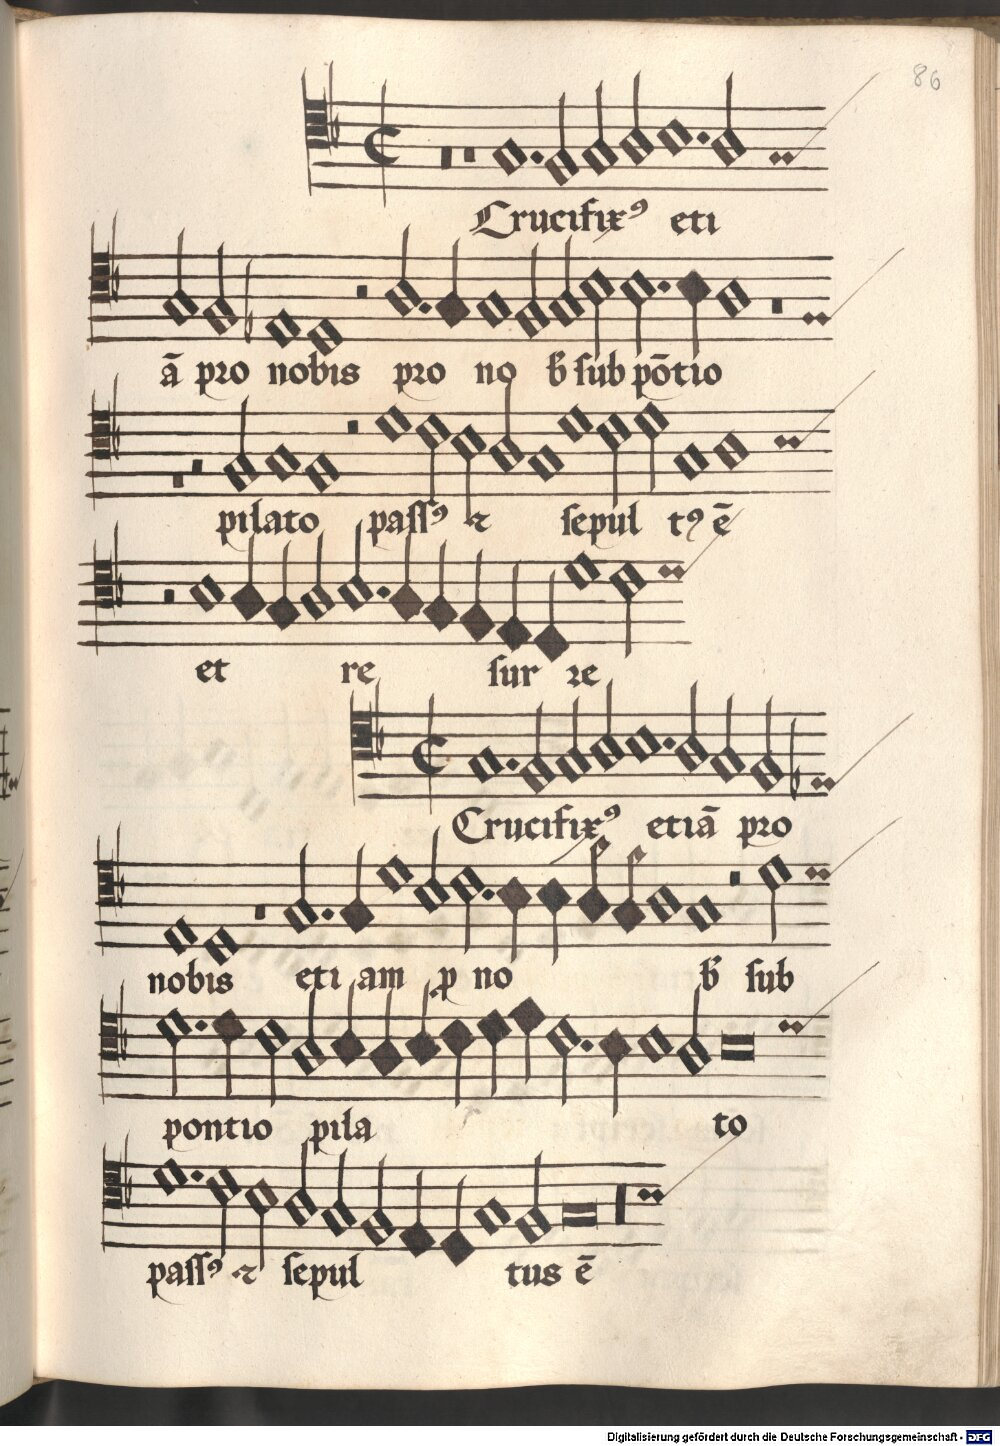 86
Crucifixꝰ eti
ā pro nobis pro no bꝭ sub pōtio
pilato passꝰ ⁊ sepul tꝰ ē
et re sur re
Crucifixꝰ etiā pro
nobis eti am p no bꝭ sub
pontio pila to
passꝰ ⁊ sepul tus ē
Digitalisierung gefördert durch die Deutsche Forschungsgemeinschaft - DFG